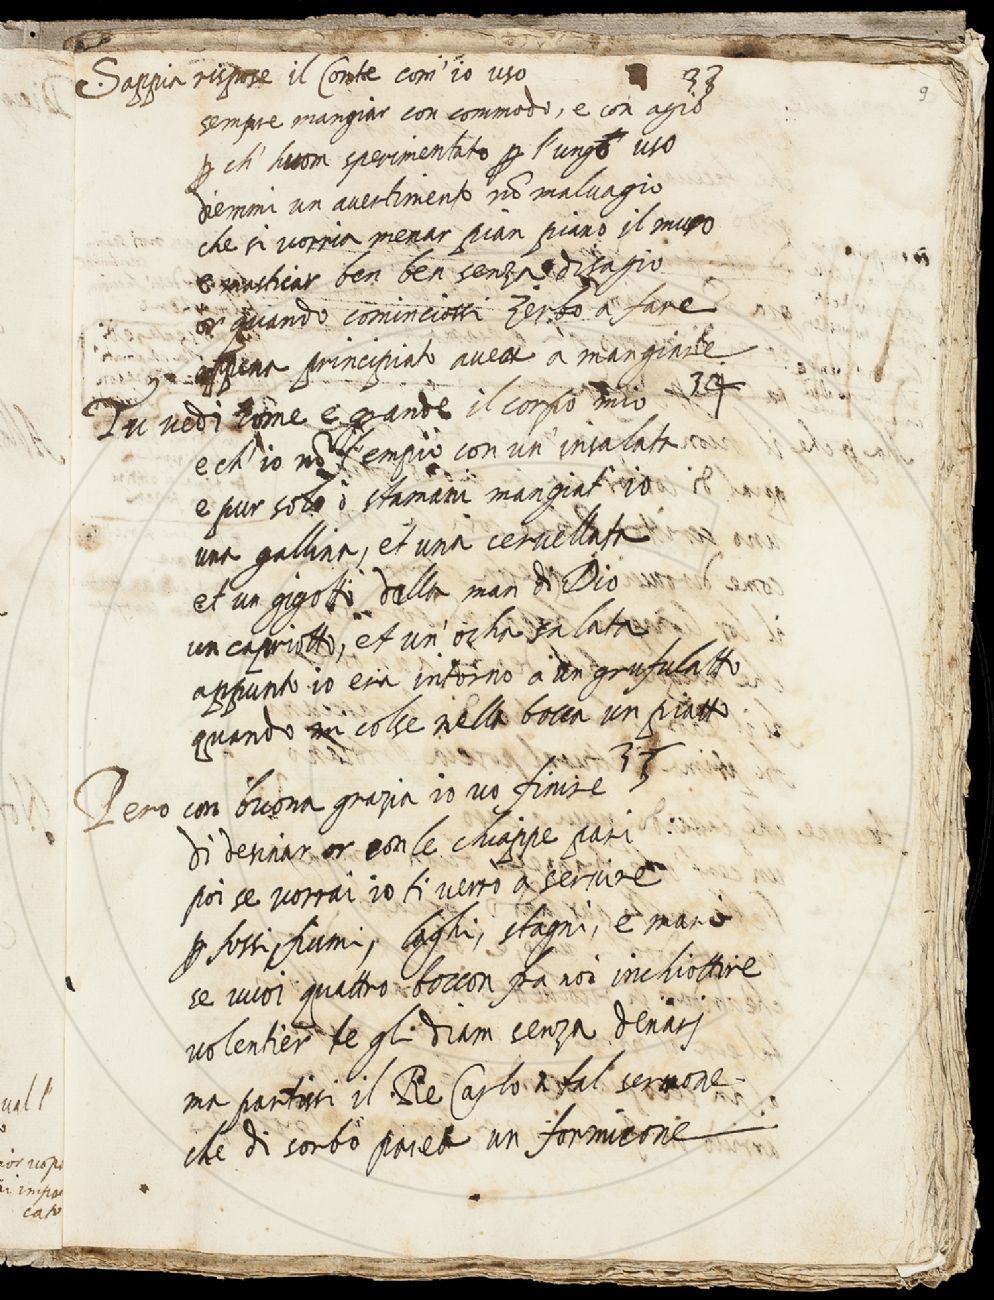 33
9
Sappia rispose il Conte com' io uso
sempre mangiar con commodo, e con agio
p ch' huom sperimentato p l'ungo uso
diemmi un avertimento nō malvagio
che si vorria menar pian piano il muso
e masticar ben ben senza disagio
or quando cominciossi Zerbo a fare
appena principiato avea a mangiare
34
Tu vedi come è grande il corpo mio
e ch' io nō l'empio con un' insalata
e pur solo ò stamani mangiat' io
una gallina, et una cervellata
et un gigotto dalla man di Dio
un capriotto, et un' ocha salata
appunto io era intorno a un grufulatto
quando mi colse nella bocca un piatto
35
Pero con buona grazia io vo finire
di desinar or con le chiappe pari
poi se vorrai io ti verrò a servire
p fossi, fiumi, laghi, stagni, e mari
se vuoi quattro boccon fra noi inchiottire
volentier te gli diam senza denari
ma partissi il Re Carlo a tal sermone
che di sorbo parea un formicone
ual l'
cato